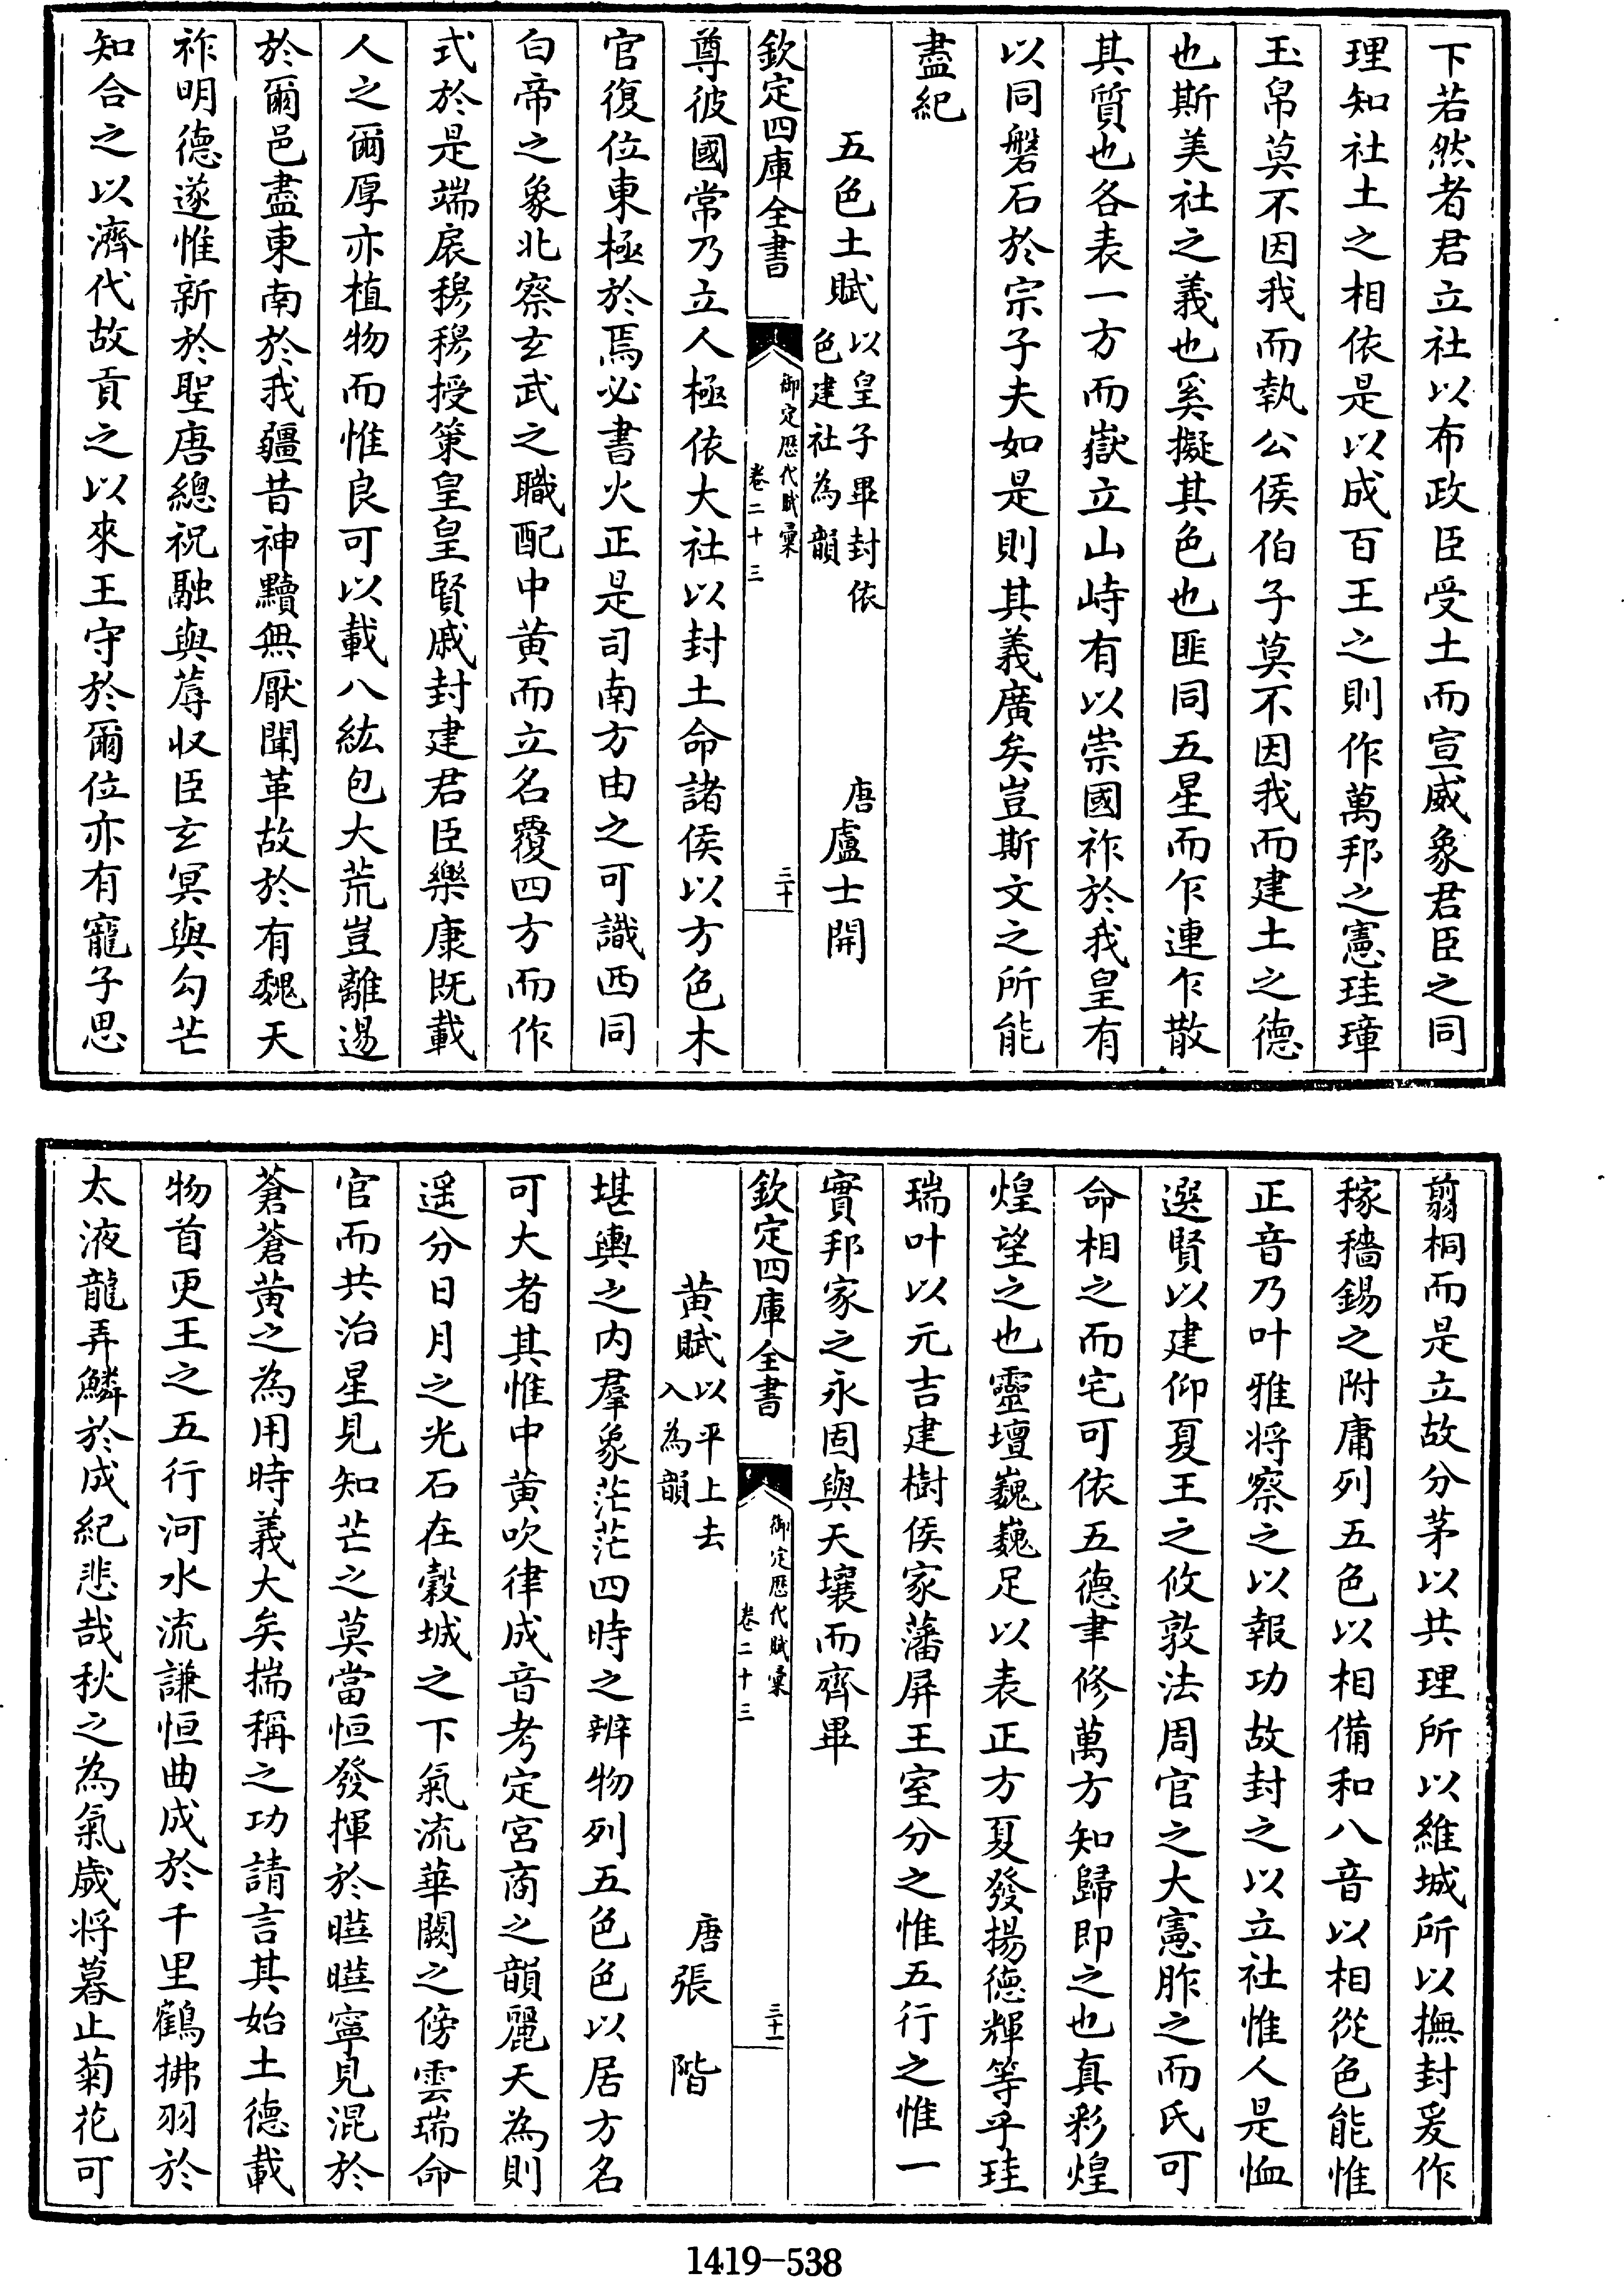 下若然者君立社以布政臣受土而宣威象君臣之同
理知社土之相依是以成百王之則作萬邦之憲珪璋
玉帛莫不因我而執公侯伯子莫不因我而建土之德
也斯美社之義也奚擬其色也匪同五星而乍連乍散
其質也各表一方而嶽立山峙有以崇國祚於我皇有
以同磐石於宗子夫如是則其義廣矣豈斯文之所能
盡紀
五色土賦以皇子畢封依色建社為韻 唐盧士開
欽定四庫全書 御定歷代賦彙 卷二十三 三十
尊彼國常乃立人極依大社以封土命諸侯以方色木
官復位東極於焉必書火正是司南方由之可識西同
白帝之象北察玄武之職配中黄而立名覆四方而作
式於是端扆穆穆授策皇皇賢戚封建君臣樂康既載
人之爾厚亦植物而惟良可以載八紘包大荒豈離逷
於爾邑盡東南於我疆昔神黷無厭聞革故於有魏天
祚明德遂惟新於聖唐總祝融與蓐收臣玄冥與勾芒
知合之以濟代故貢之以來王守於爾位亦有寵子思
翦桐而是立故分茅以共理所以維城所以撫封爰作
稼穡錫之附庸列五色以相備和八音以相從色能惟
正音乃叶雅将察之以報功故封之以立社惟人是恤
選賢以建仰夏王之攸敦法周官之大憲胙之而氏可
命相之而宅可依五德聿修萬方知歸即之也真彩煌
煌望之也靈壇巍巍足以表正方夏發揚德輝等乎珪
瑞叶以元吉建樹侯家藩屏王室分之惟五行之惟一
實邦家之永固與天壤而齊畢
欽定四庫全書 御定歷代賦彙 卷二十三 三十一
黄賦以平上去入為韻 唐張階
堪輿之内羣象茫茫四時之辨物列五色色以居方名
可大者其惟中黄吹律成音考定宫商之韻麗天為則
遥分日月之光石在穀城之下氣流華闕之傍雲瑞命
官而共治星見知芒之莫當恒發揮於曀曀寧見混於
蒼蒼黄之為用時義大矣揣稱之功請言其始土德載
物首更王之五行河水流謙恒曲成於千里鶴拂羽於
太液龍弄鱗於成紀悲哉秋之為氣歲将暮止菊花可
1419-538